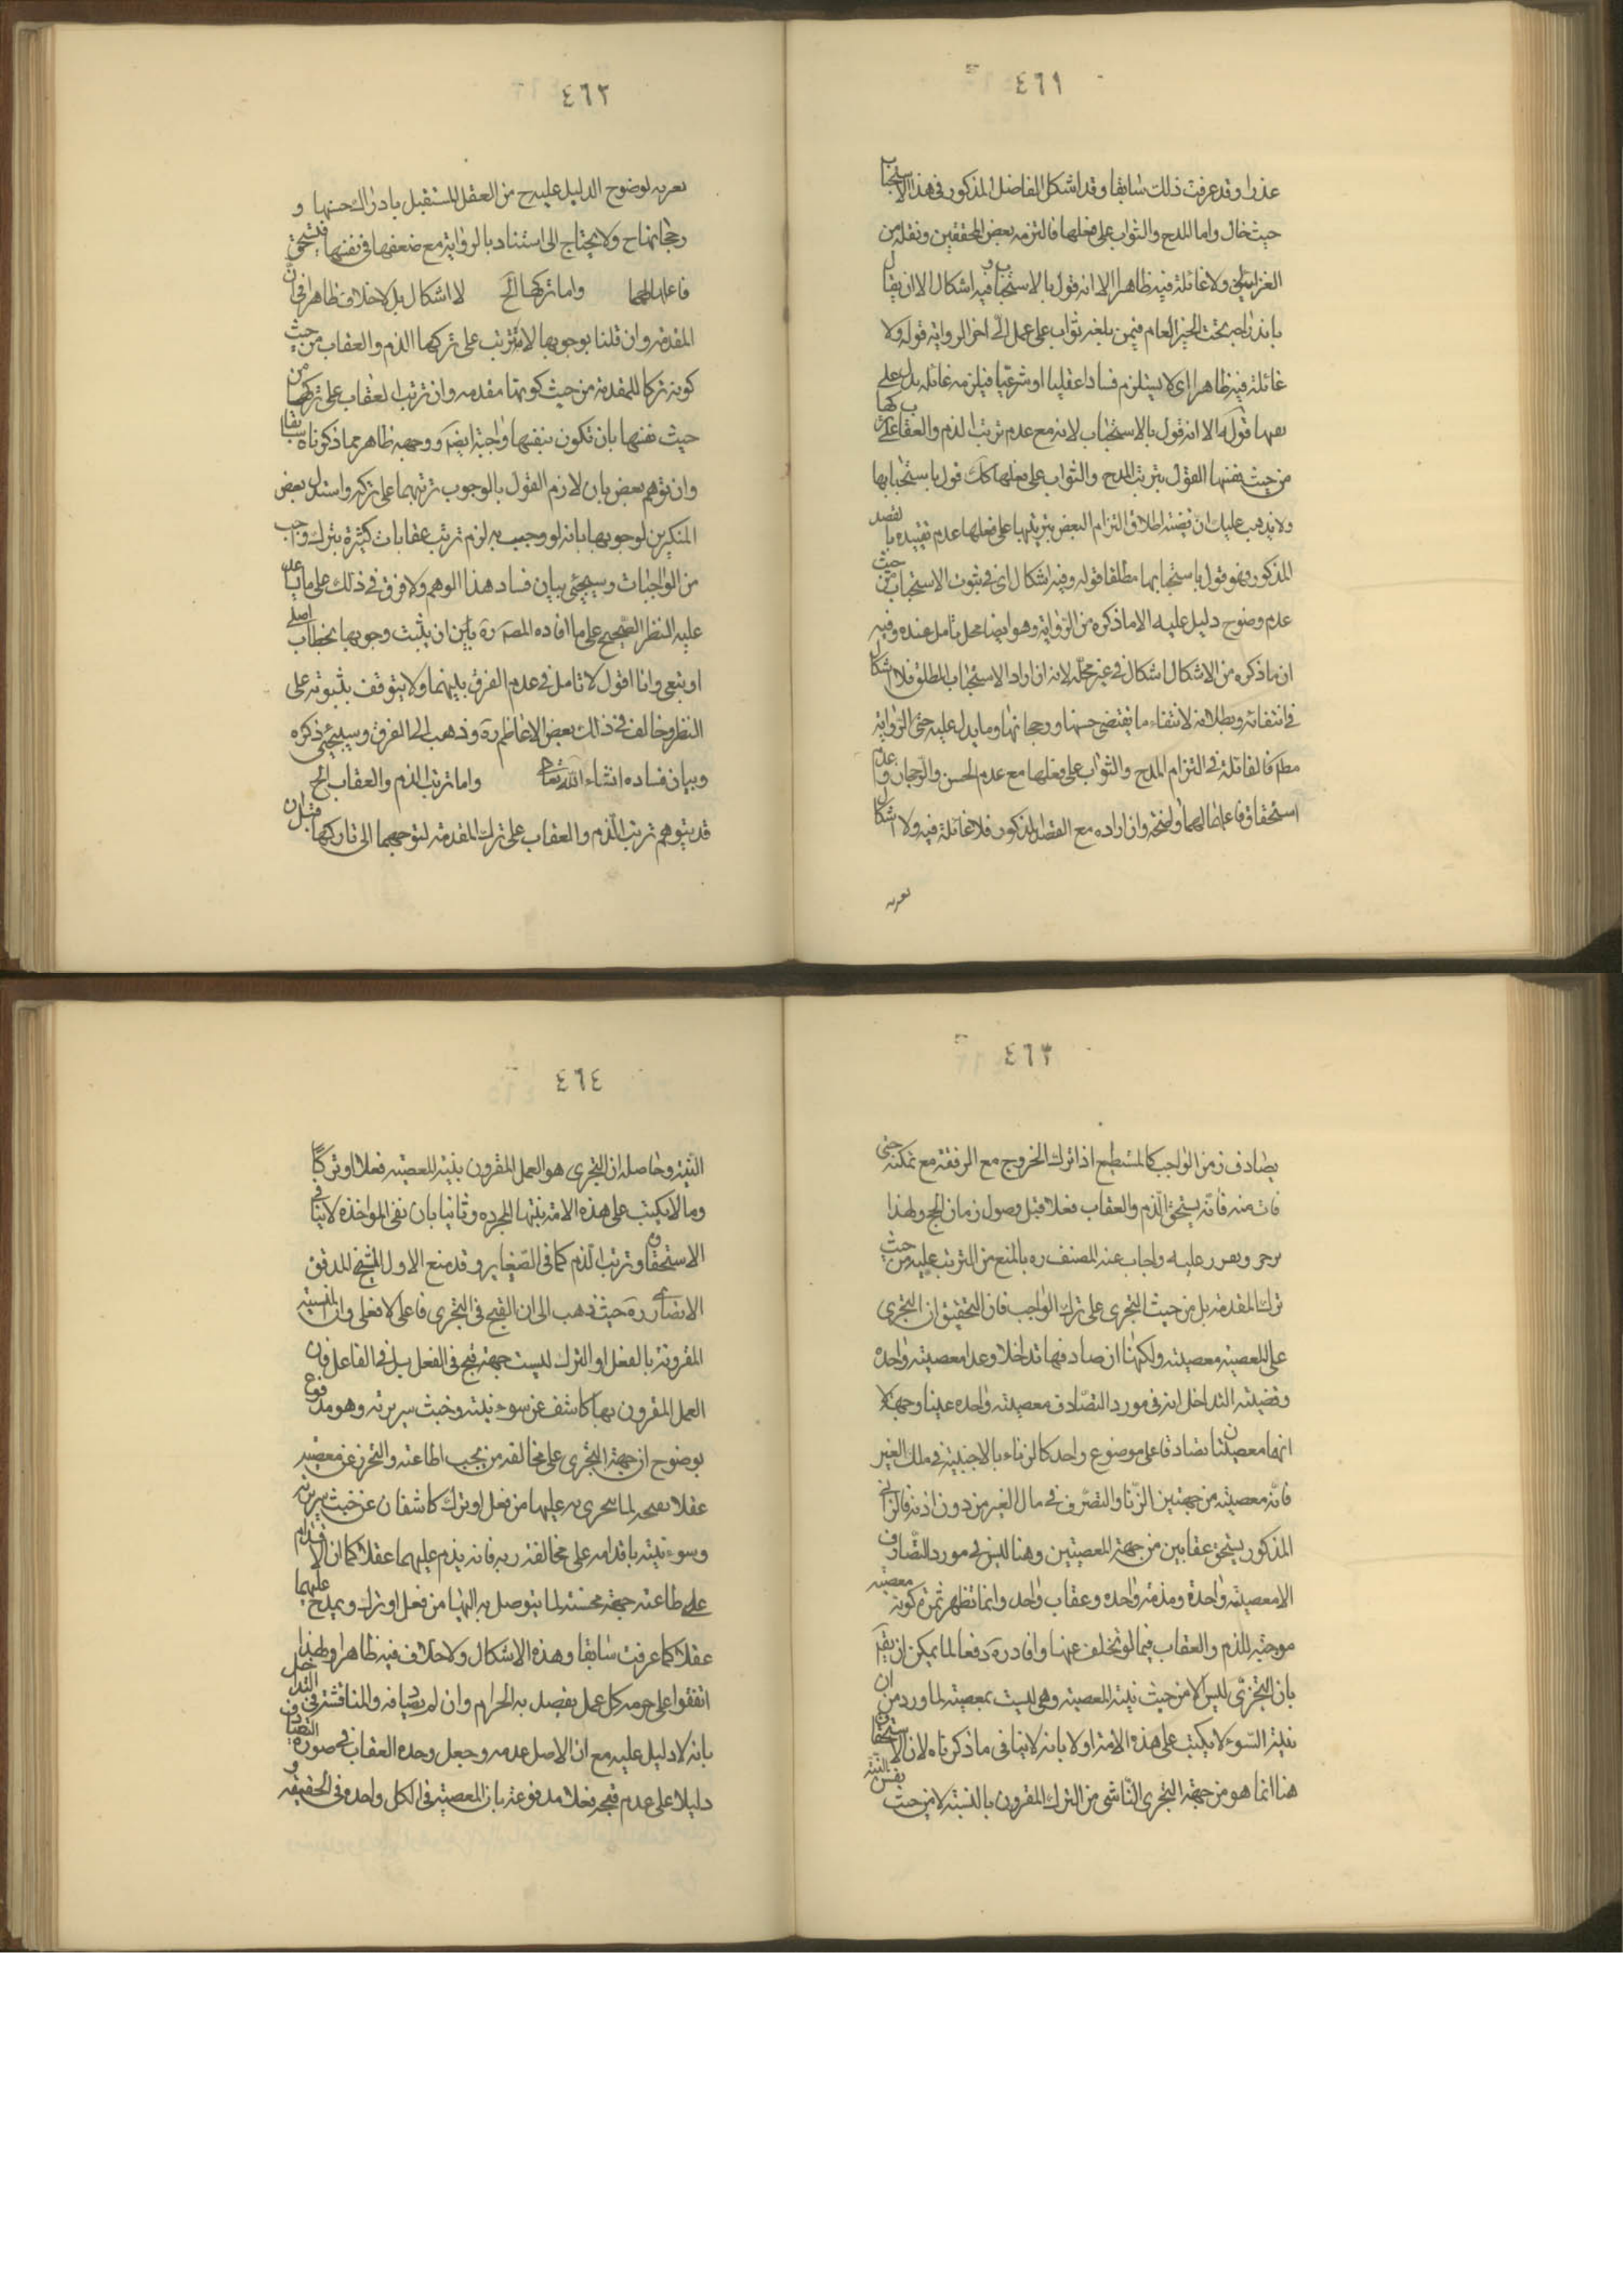 ٤٦١
عذرا وقد عرفت ذلك سابقا وقد اشكل الفاضل المذكور في هذا الاستحباب
حيث قال واما المدح والثواب على فعلها فالتزمه بعض المحققين ونقله عن
الغزالي ولا غائلة فيه ظاهرا الا انه قول بالاستحباب وفيه اشكال الا ان يقال
باندراجه تحت الخبر العام فيمن بلغه ثواب على عمل الى اخر الرواية قوله ولا
غائلة فيه ظاهرا اى لا يستلزم فسادا عقليا او شرعيا فيلزمه غائلة يدل على
نفيها قوله الا انه قول بالاستحباب لانه مع عدم ترتب الذم والعقاب على تركها
من حيث نفسها القول بترتب المدح والثواب على فعلها كك قول باستحبابها
ولا يذهب عليك ان قضية اطلاق التزام البعض بترتبهما على فعلها عدم تقييده بالقصد
المذكور فهو قول باستحبابها مطلقا قوله وفيه اشكال اى في ثبوت الاستحباب من حيث
عدم وضوح دليل عليه الا ما ذكره من الرواية وهو ايضا محل تامل عنده وفيه
ان ما ذكره من الاشكال اشكال في غير محله لانه ان اراد الاستحباب المطلق فلا اشكال
في انتفائه وبطلانه لانتفاء ما يقتضى حسنها ورجحانها وما يدل عليه حتى الرواية
مطم فالغائلة في التزام المدح والثواب على فعلها مع عدم الحسن والرجحان وعدم
استحقاق فاعلها لهما واضحة وان اراده مع القصد المذكور فلا غائلة فيه ولا اشكال
٤٦٢
يعريه لوضوح الدليل عليه ح من العقل المستقبل بادراك حسنها و
رجحانها ح ولا يحتاج الى استناد بالرواية مع ضعفها في نفسها فيستحق
فاعلها لهما واما تركها الخ لا اشكال بل لا خلاف ظاهرا في ان
المقدمة وان قلنا بوجوبها لا يترتب على تركها الذم والعقاب من حيث
كونه تركا للمقدمة من حيث كونها مقدمه وان ترتب العقاب على تركها من
حيث نفسها بان تكون بنفسها واجبة ايضم ووجهه ظاهر مما ذكرناه سابقا
وان توهم بعض بان لازم القول بالوجوب ترتبهما على تركه واستدل بعض
المنكرين لوجوبها بانه لو وجبت به لزم ترتب عقابات كثيرة بترك واجب
من الواجبات وسيجئ بيان فساد هذا الوهم ولا فرق في ذلك على ما يساعد
عليه النظر الصحيح على ما افاده المصم ره بين ان يثبت وجوبها بخطاب اصلي
او تبعي وانا اقول لا تامل في عدم الفرق بينهما ولا يتوقف بثبوته على
النظر وخالف في ذلك بعض الاعاظم ره وذهب الى الفرق وسيجئ ذكره
وبيان فساده انشاء الله تعالى واما ترتب الذم والعقاب الخ
قد يتوهم ترتب الذم والعقاب على ترك المقدمة لتوجههما الى تاركها قبل ان
٤٦٣
يصادف زمن الواجب كالمستطيع اذا ترك الخروج مع الرفقة مع تمكنه حتى
فات منه فانه يستحق الذم والعقاب فعلا قبل وصول زمان الحج ولهذا
يزجر ويعزر عليه واجاب عنه المصنف ره بالمنع من الترتب عليه من حيث
ترك المقدمة بل من حيث التجرى على ترك الواجب فان التحقيق ان التجرى
على المعصية معصية ولكنها ان صادفها تداخلا وعدا معصية واحدة
وقضية التداخل انه في مورد التصادف معصية واحدة عينا وجهة لا
انهما معصيتان تصادقا على موضوع واحد كالزناء بالاجنبية في ملك الغير
فانه معصية من جهتين الزنا والتصرف في مال الغير من دون اذنه فالزاني
المذكور يستحق عقابين من جهة المعصيتين وهنا ليس في مورد التصادف
الا معصية واحدة ومذمة واحدة وعقاب واحد وانما تظهر ثمرة كونه معصية
موجبة للذم والعقاب فيما لو تخلف عنها وافاد ره دفعا لما يمكن ان يقم
بان التجرى ليس الا من حيث نية المعصية وهي ليست بمعصية لما ورد من ان
نية السوء لا يكتب على هذه الامة اولا بانه لا ينافي ما ذكرناه لان الاستحقاق
هنا انما هو من جهة التجرى الناشى من الترك المقرون بالنية لا من حيث نفس النية
٤٦٤
النية وحاصله ان التجرى هو العمل المقرون بنية المعصية فعلا او تركا
وما لا يكتب على هذه الامة نيتها المجردة وثانيا بان نفى المواخذة لا ينافي
الاستحقاق وترتب الذم كما في الصغاير وقد منع الاول الشيخ المدقق
الانصاري ره حيث ذهب الى ان القبح في التجرى فاعلى لا فعلى وان النية
المقرونة بالفعل او الترك ليست جهة قبح في الفعل بل في الفاعل فان
العمل المقرون بها كاشف عن سوء نيته وخبث سريرته وهو مدفوع
بوضوح ان جهة التجرى على مخالفة من يجب اطاعته والتحرز عن معصيته
عقلا مقبحة لما يتجرى به عليها من فعل او ترك كاشفان عن خبث سريرته
وسوء نيته باقدامه على مخالفة ربه فانه يذم عليهما عقلا كما ان الاقدام
على طاعته جهة محسنة لما يتوصل به اليها من فعل او ترك ويمدح عليهما
عقلا كما عرفت سابقا وهذه الاشكال ولا خلاف فيه ظاهرا ولهذا
اتفقوا على حرمة كل عمل يقصد به الحرام وان لم يصادفه والمناقشة في التداخل
بانه لا دليل عليه مع ان الاصل عدمه وجعل وحدة العقاب في صورة التصادف
دليلا على عدم قبحه فعلا مدفوعة بان المعصية في الكل واحدة في الحقيقة و